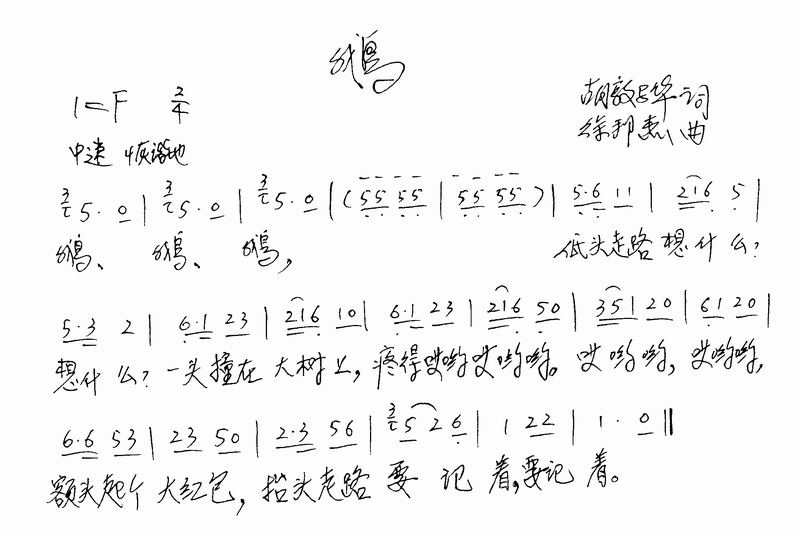 鹅
1=F 2/4
胡敦华词
徐邦杰曲
中速 恢谐地
3 5. 0 | 3 5. 0 | 3 5. 0 | (55 55 | 55 55) | 5.6 11 | 216 5 |
鹅、 鹅、 鹅, 低头走路想什么?
5.3 2 | 6.1 23 | 216 10 | 6.1 23 | 216 50 | 351 20 | 61 20 |
想什么?一头撞在大树上,疼得哎哟哎哟哟。哎哟哟,哎哟哟,
6.6 53 | 23 50 | 2.3 56 | 3 5 26 | 1 22 | 1. 0 ‖
额头起个大红包,抬头走路要记着,要记着。